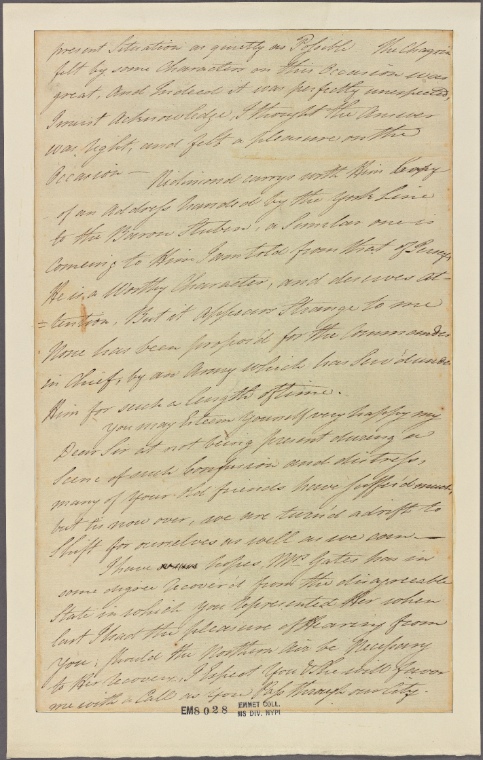 present Situation as quietly as Possible The Chagrin
felt by some Characters on this Occasion was
great, and Indeed it was perfectly unexpected,
I must Acknowledge, I thought the Answer
was right, and felt a pleasure on the
Occasion —
Richmond carrys with Him Copy
of an Address handed by the York Line
to the Baron Stuben, a Similar one is
Coming to Him I am told from that of Jersey,
He is a Worthy Character, and deserves at-
-tention, But it Appears Strange to me
None has been propos'd for the Commander
in Chief, by an Army which has Serv'd under
Him for such a length of time.
You may Esteem Yourself very happy my
Dear Sir at not being present during a
Scene of such Confusion and distress,
many of Your Old friends have suffer'd much,
but tis now over, we are turn'd adrift to
Shift for ourselves as well as we can —
I have hopes Mrs Gates has in
some degree recover'd from the disagreeable
State in which You represented Her when
last I had the pleasure of Hearing from
You; Should the Northern Air be Necessary
to Her recovery, I Expect You & She will favor
me with a Call as You Pass through our City.
EM8028
EMMET COLL.
MS DIV. NYPL